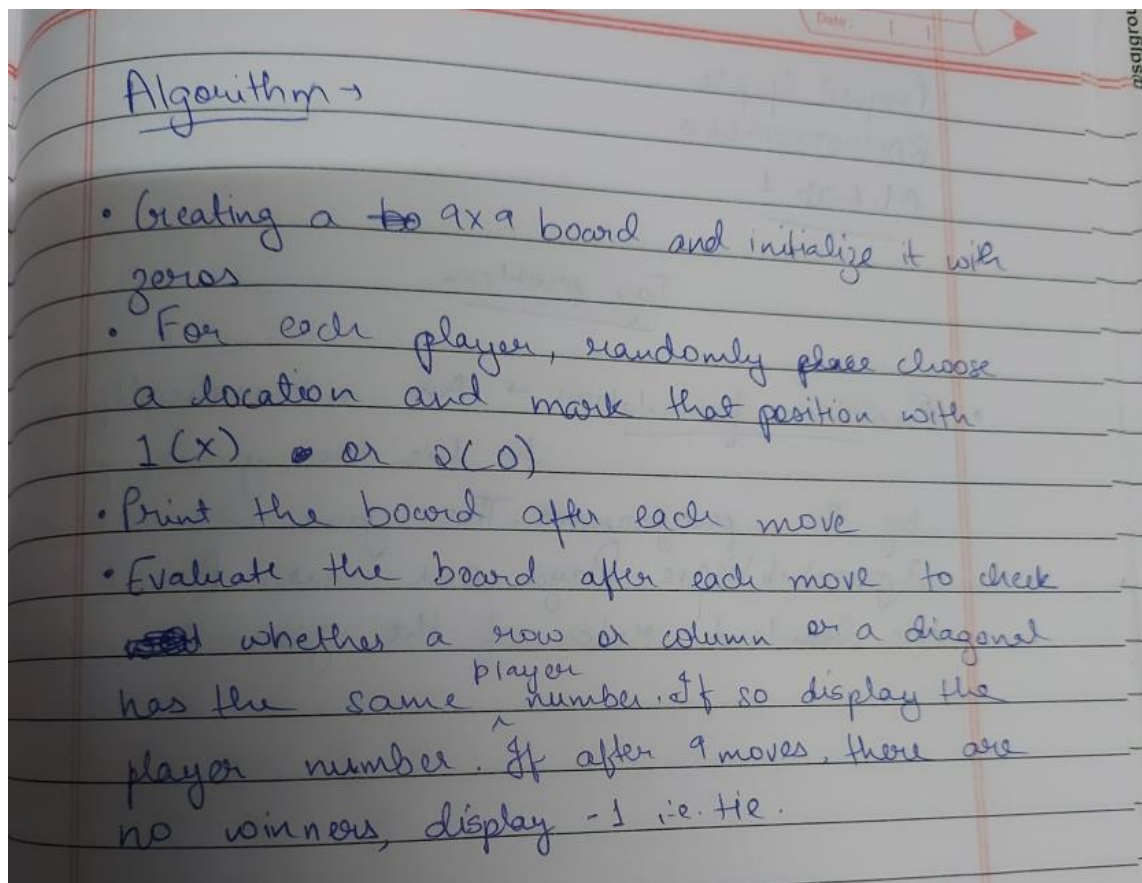 Date:
Algorithm →
• Creating a 9x9 board and initialize it with
zeros
• For each player, randomly place choose
a location and mark that position with
1(X) or 2(O)
• Print the board after each move
• Evaluate the board after each move to check
whether a row or column or a diagonal
has the same player number. If so display the
player number. If after 9 moves, there are
no winners, display -1 i.e. tie.